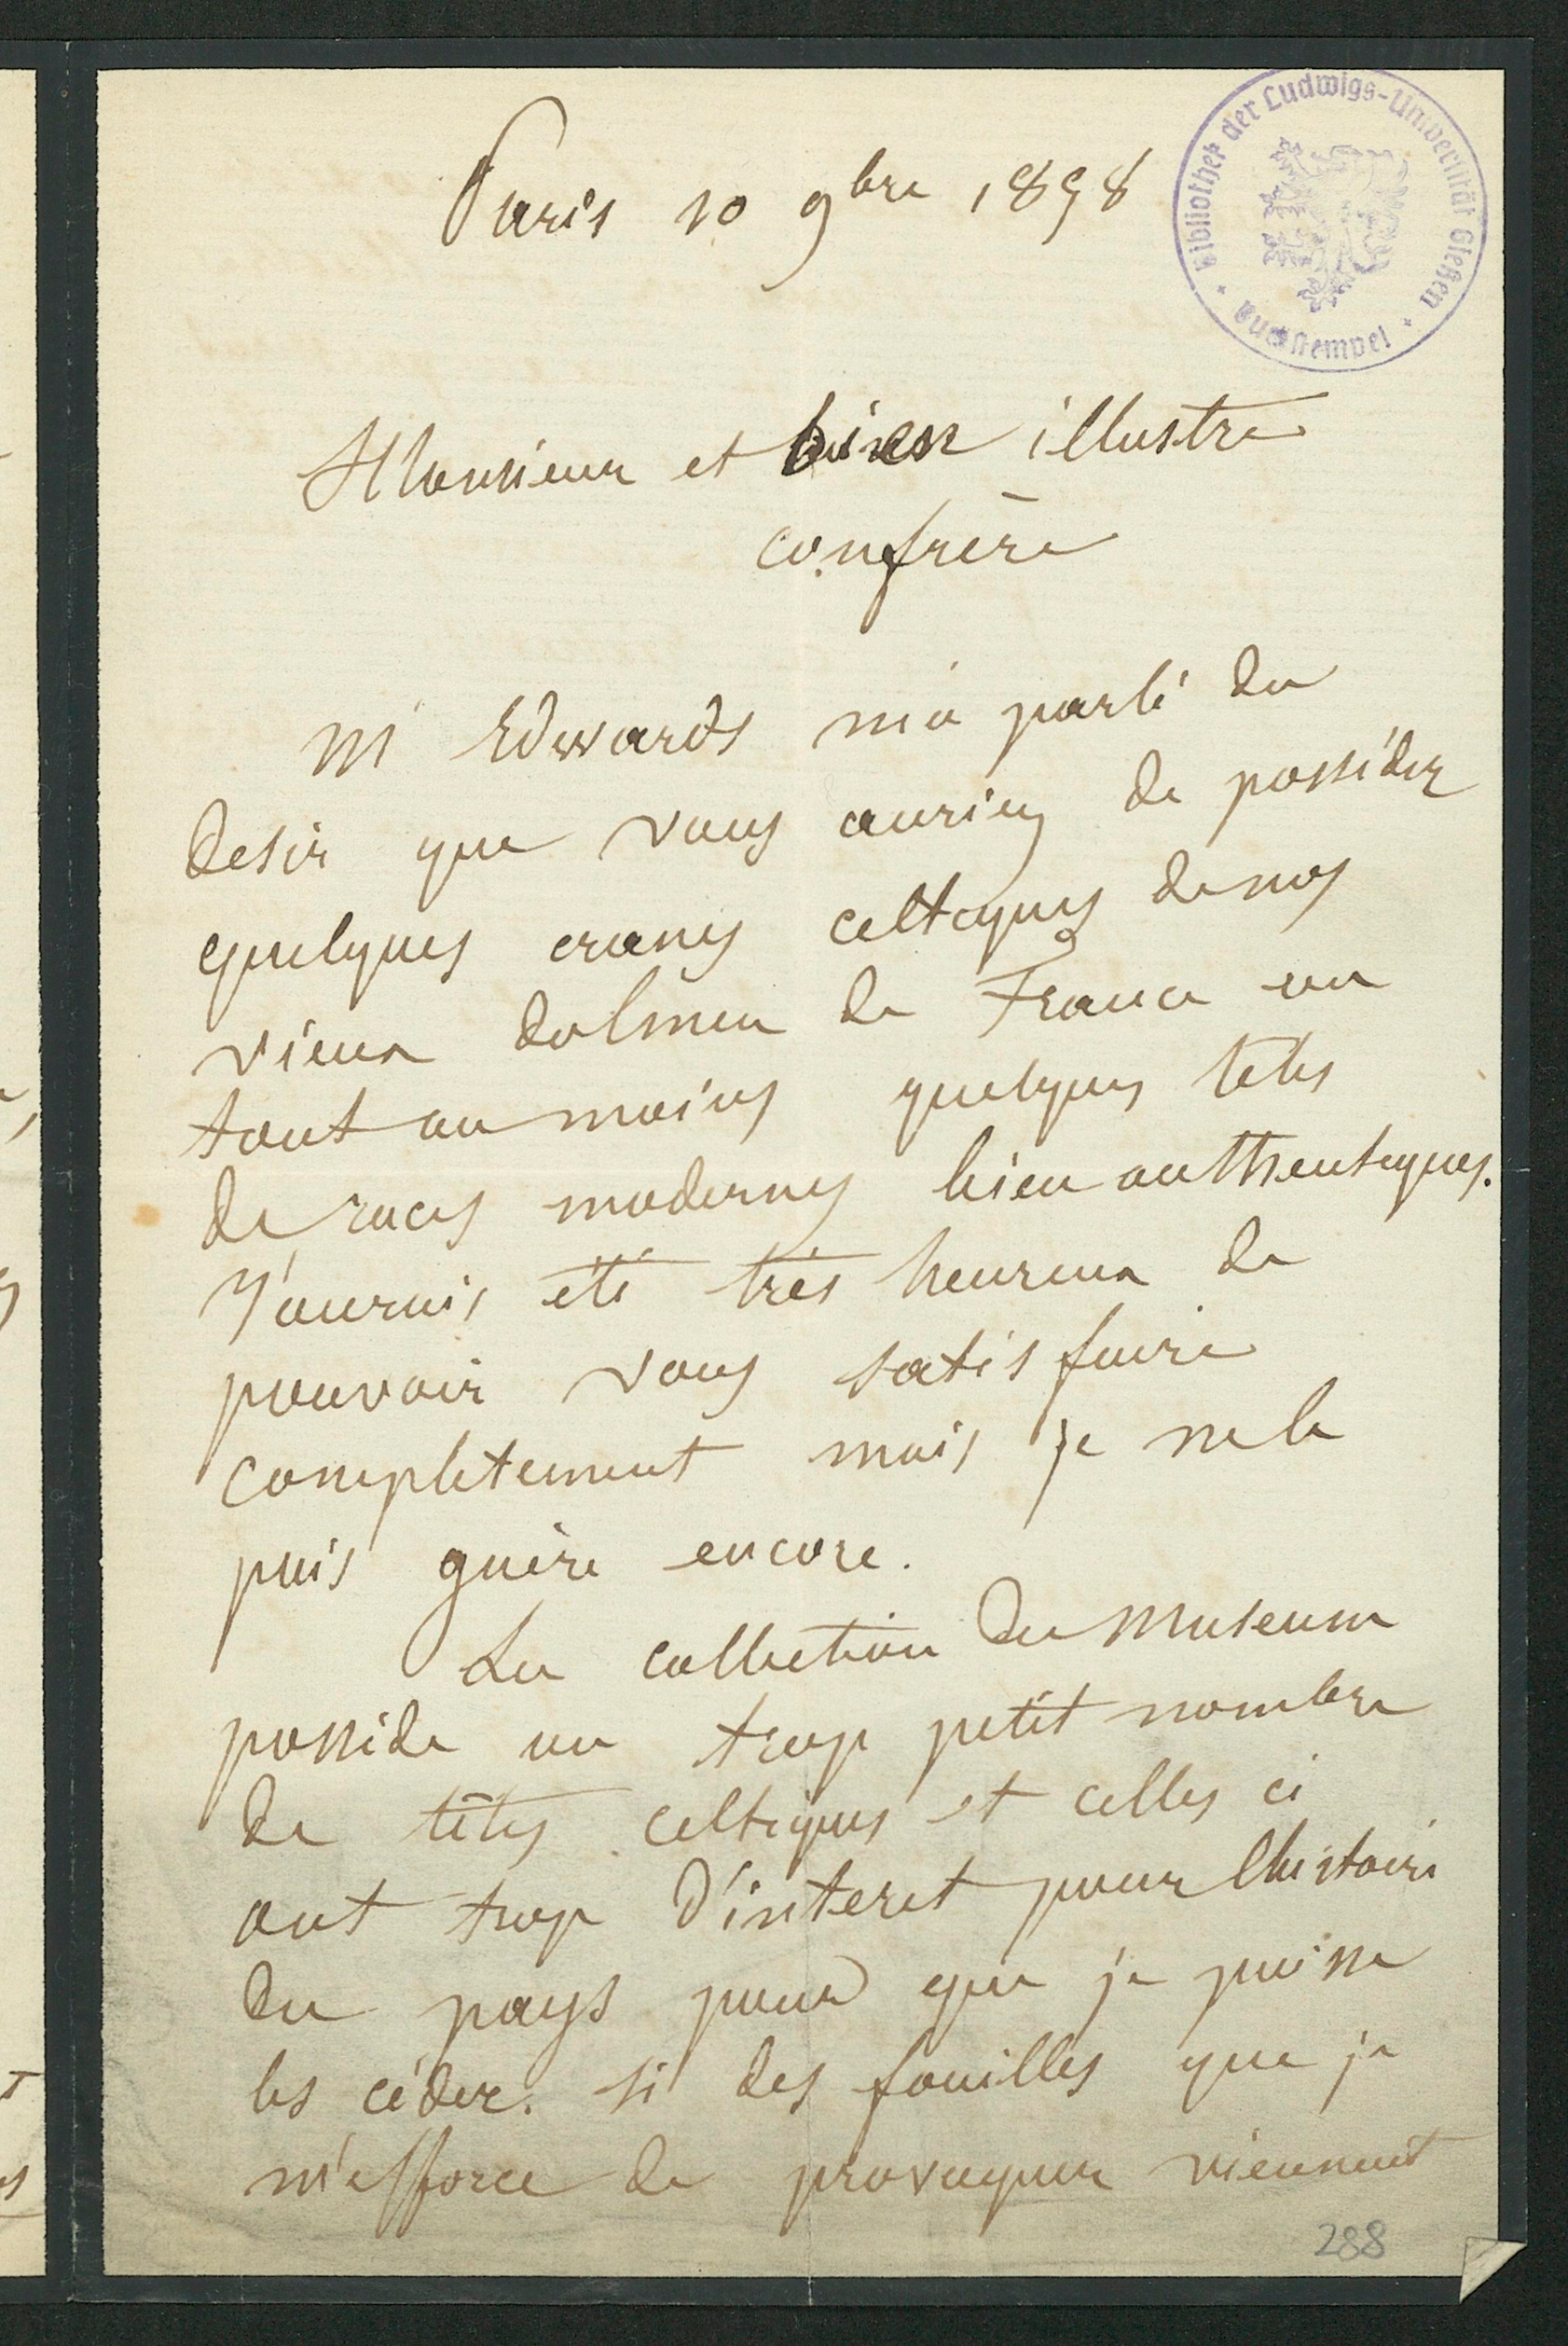 Paris 10 9bre 1858
Bibliothek der Ludwigs-Universität Gießen
Buchstempel
Monsieur et bien illustre
confrère
Mr Edwards m'a parlé du
desir que vous auriez de posséder
quelques cranes celtiques de nos
vieux dolmen de France ou
tout au moins quelques têtes
de races modernes bien authentiques.
J'aurais été très heureux de
pouvoir vous satisfaire
completement mais je ne le
puis guère encore.
La collection du Museum
possede un trop petit nombre
de têtes celtiques et celles ci
ont trop d'interet pour lhistoire
du pays pour que je puisse
les céder. si des fouilles que je
m'efforce de provoquer viennent
288